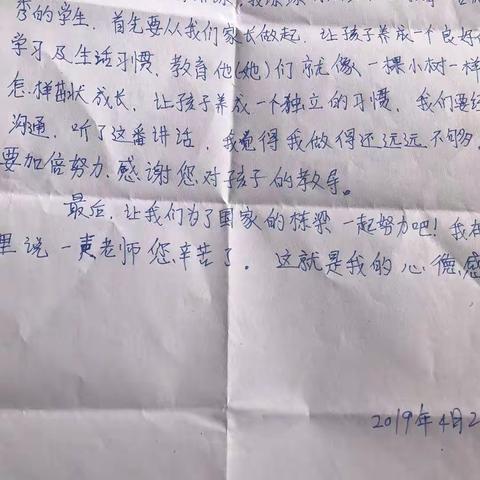 秀的学生，首先要从我们家长做起，让孩子养成一个良好
学习及生活习惯，教育他(她)们就像一棵小树一样
怎样茁壮成长，让孩子养成一个独立的习惯，我们要
沟通，听了这番讲话，我觉得我做得还远远不够，
要加倍努力，感谢您对孩子的教导。
最后，让我们为了国家的栋梁一起努力吧！我在
里说一声老师您辛苦了。这就是我的心德感
2019年4月2